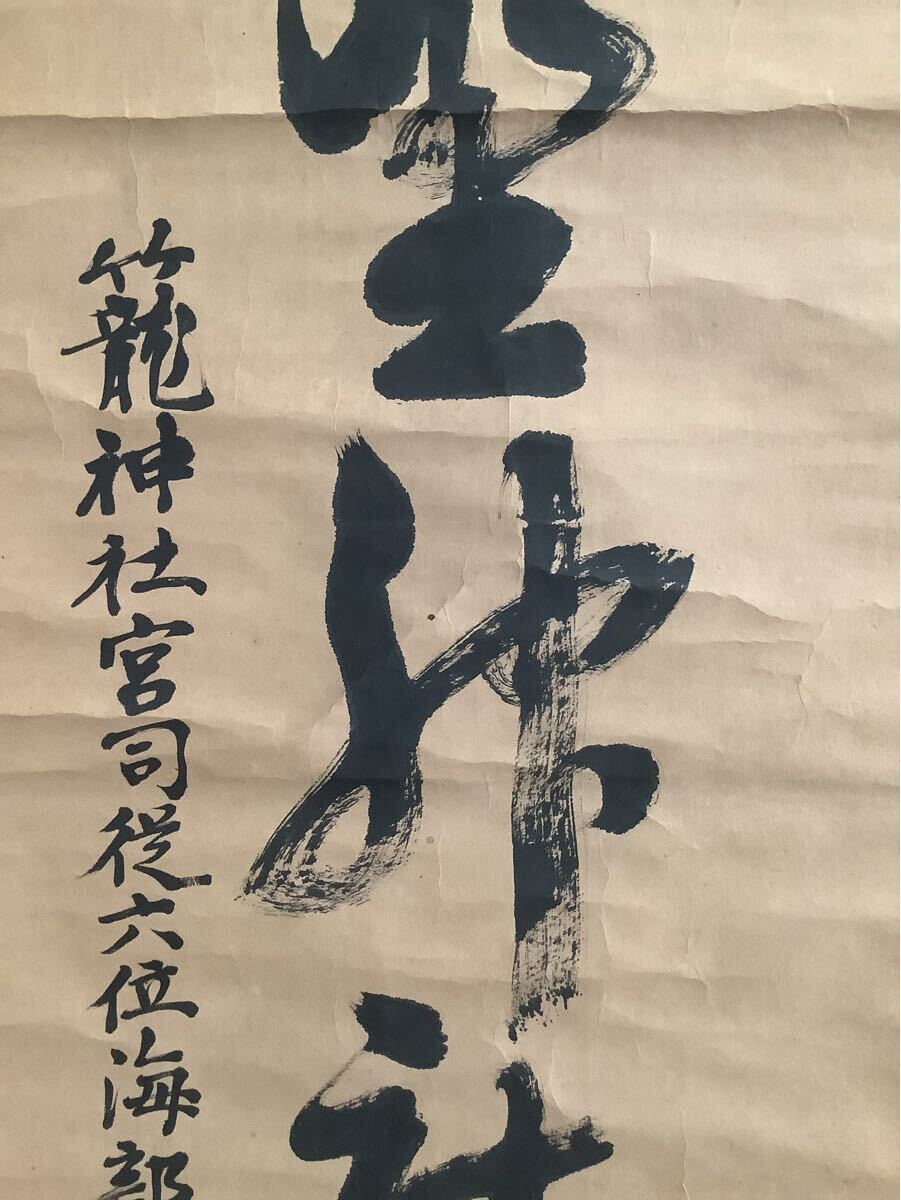 神社
籠神社宮司従六位海部